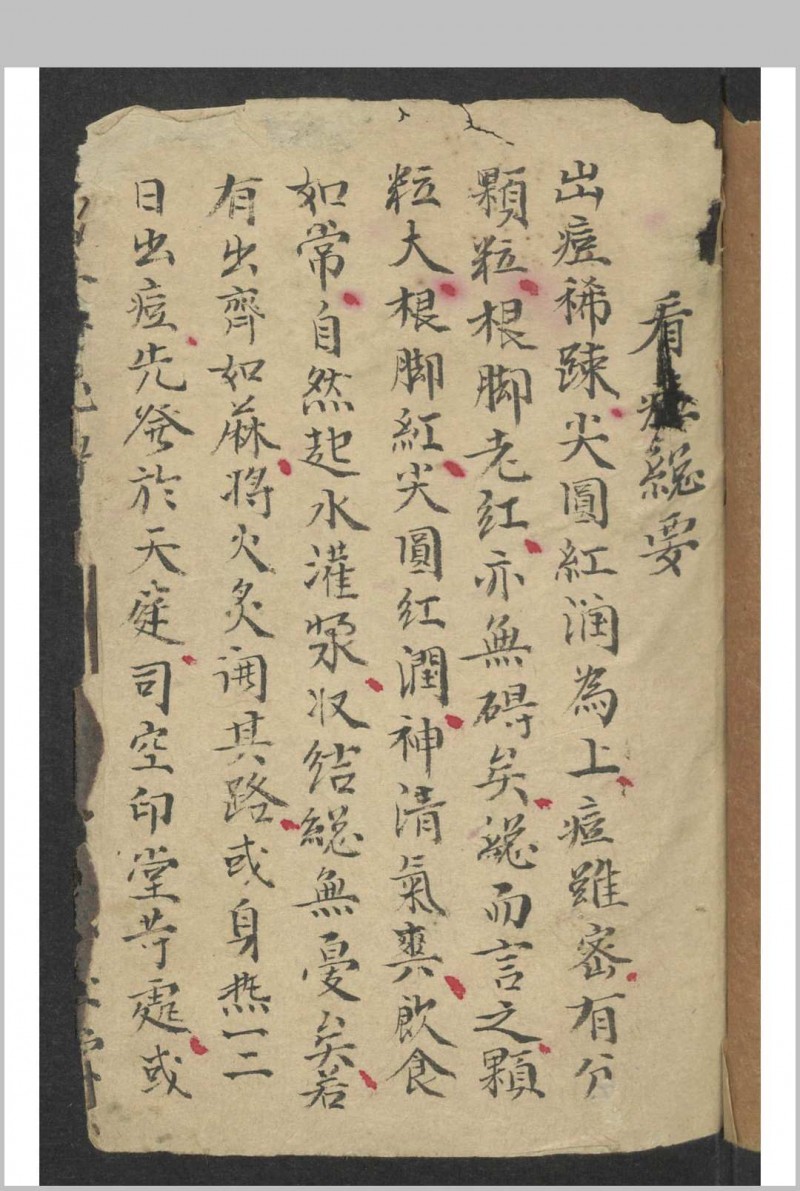 看痘総要
出痘稀踈尖圓紅润為上痘雖密有分
顆粒根脚老红亦無碍矣総而言之顆
粒大根脚紅尖圓红潤神清氣爽飲食
如常自然起水灌漿収结総無憂矣若
有出齊如蔴将火炙開其路或身热一二
日出痘先發於天庭司空印堂等處或